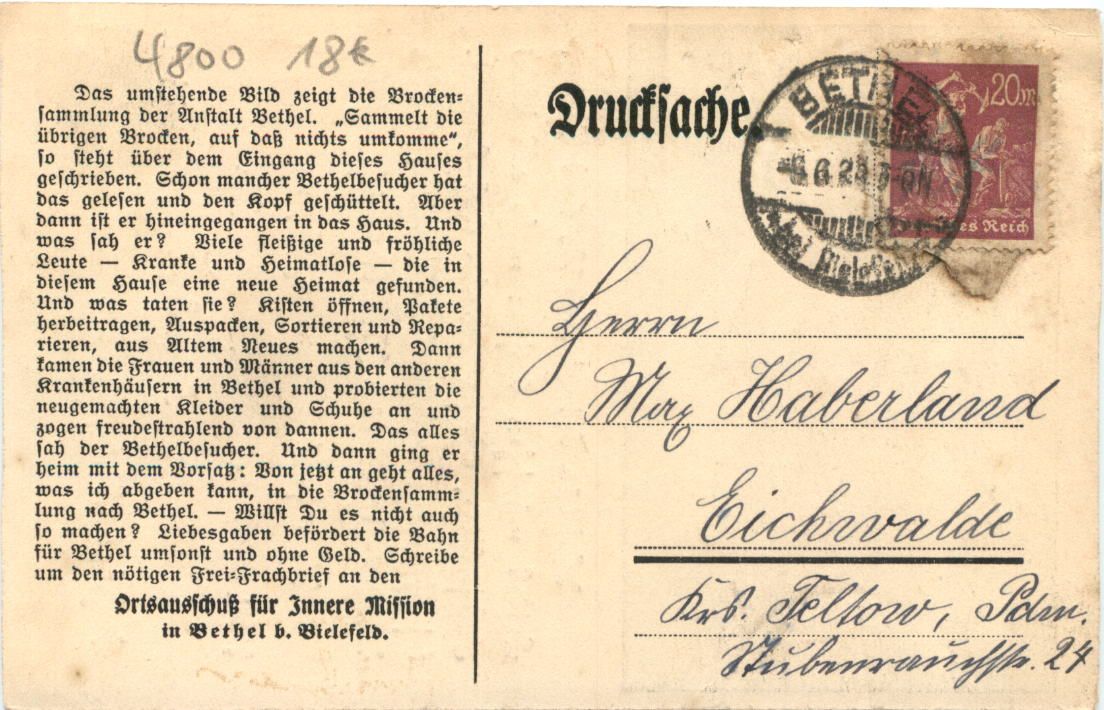 4800 18€
Das umstehende Bild zeigt die Brocken-
sammlung der Anstalt Bethel. „Sammelt die
übrigen Brocken, auf daß nichts umkomme“,
so steht über dem Eingang dieses Hauses
geschrieben. Schon mancher Bethelbesucher hat
das gelesen und den Kopf geschüttelt. Aber
dann ist er hineingegangen in das Haus. Und
was sah er? Viele fleißige und fröhliche
Leute — Kranke und Heimatlose — die in
diesem Hause eine neue Heimat gefunden.
Und was taten sie? Kisten öffnen, Pakete
herbeitragen, Auspacken, Sortieren und Repa-
rieren, aus Altem Neues machen. Dann
kamen die Frauen und Männer aus den anderen
Krankenhäusern in Bethel und probierten die
neugemachten Kleider und Schuhe an und
zogen freudestrahlend von dannen. Das alles
sah der Bethelbesucher. Und dann ging er
heim mit dem Vorsatz: Von jetzt an geht alles,
was ich abgeben kann, in die Brockensamm-
lung nach Bethel. — Willst Du es nicht auch
so machen? Liebesgaben befördert die Bahn
für Bethel umsonst und ohne Geld. Schreibe
um den nötigen Frei-Frachbrief an den
Ortsausschuß für Innere Mission
in Bethel b. Bielefeld.
Drucksache.
BETHEL
bei Bielefeld
20 M
es Reich
Herrn
Max Haberland
Eichwalde
Krs. Teltow, Pdm.
Stubenrauchstr. 24